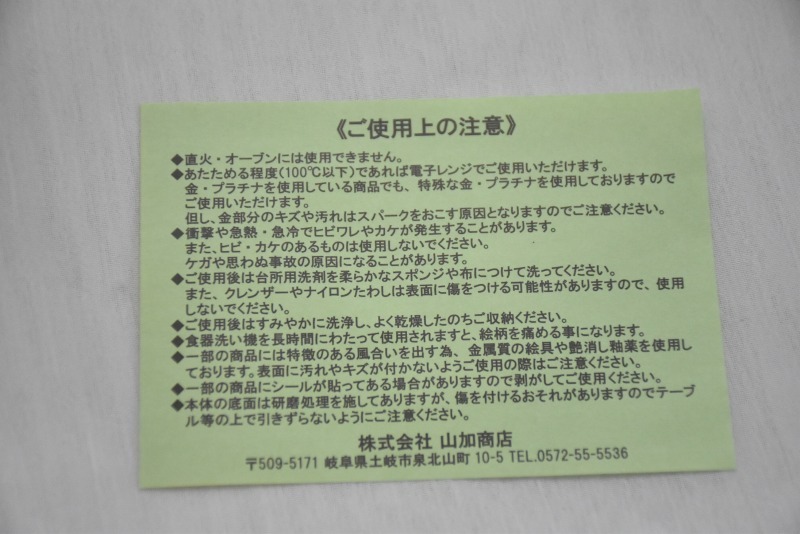 《ご使用上の注意》
◆直火・オーブンには使用できません。
◆あたためる程度(100℃以下)であれば電子レンジでご使用いただけます。
金・プラチナを使用している商品でも、特殊な金・プラチナを使用しておりますので
ご使用いただけます。
但し、金部分のキズや汚れはスパークをおこす原因となりますのでご注意ください。
◆衝撃や急熱・急冷でヒビワレやカケが発生することがあります。
また、ヒビ・カケのあるものは使用しないでください。
ケガや思わぬ事故の原因になることがあります。
◆ご使用後は台所用洗剤を柔らかなスポンジや布につけて洗ってください。
また、クレンザーやナイロンたわしは表面に傷をつける可能性がありますので、使用
しないでください。
◆ご使用後はすみやかに洗浄し、よく乾燥したのちご収納ください。
◆食器洗い機を長時間にわたって使用されますと、絵柄を痛める事になります。
◆一部の商品には特徴のある風合いを出す為、金属質の絵具や艶消し釉薬を使用し
ております。表面に汚れやキズが付かないようご使用の際はご注意ください。
◆一部の商品にシールが貼ってある場合がありますので剥がしてご使用ください。
◆本体の底面は研磨処理を施してありますが、傷を付けるおそれがありますのでテーブ
ル等の上で引きずらないようにご注意ください。
株式会社 山加商店
〒509-5171 岐阜県土岐市泉北山町 10-5 TEL.0572-55-5536